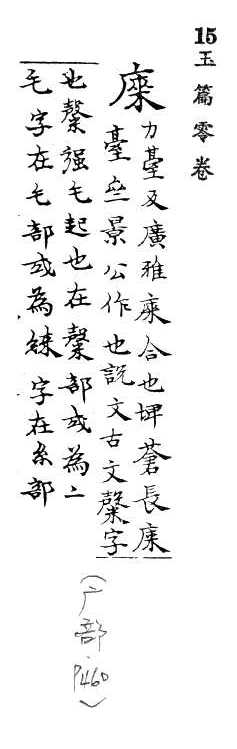 15 玉篇零卷
庲
力臺反廣雅庲合也埤蒼長庲
臺亝景公作也說文古文斄字
也斄强毛起也在斄部或為二
毛字在毛部或為 字在糸部
(广部.P460)